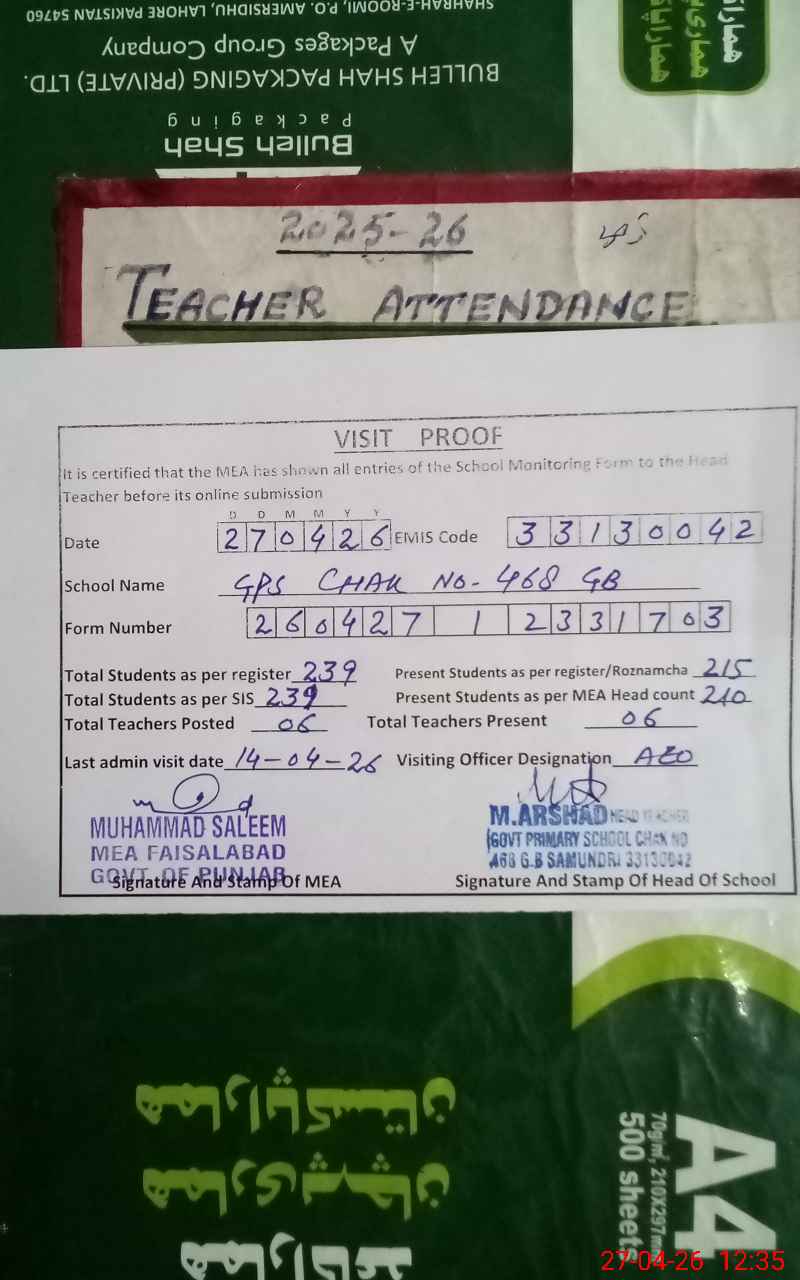 SHAHRAH-E-ROOMI, P.O. AMERSIDHU, LAHORE PAKISTAN 54760
A Packages Group Company
BULLEH SHAH PACKAGING (PRIVATE) LTD.
Packaging
Bulleh Shah
2025-26
TEACHER ATTENDANCE
VISIT PROOF
It is certified that the MEA has shown all entries of the School Monitoring Form to the Head
Teacher before its online submission
D D M M Y Y
Date 270426 EMIS Code 33130042
School Name GPS CHAK NO- 468 GB
Form Number 260427 1 2331703
Total Students as per register 239 Present Students as per register/Roznamcha 215
Total Students as per SIS 239 Present Students as per MEA Head count 210
Total Teachers Posted 06 Total Teachers Present 06
Last admin visit date 14-04-26 Visiting Officer Designation AEO
MUHAMMAD SALEEM
MEA FAISALABAD
GOVT. OF PUNJAB
Signature And Stamp Of MEA
M.ARSHAD HEAD TEACHER
GOVT PRIMARY SCHOOL CHAK NO
468 G.B SAMUNDRI 33130042
Signature And Stamp Of Head Of School
ھمارا پاکستان
ھماری پہچان
A4
70g/m², 210X297mm
500 sheets
27-04-26 12:35